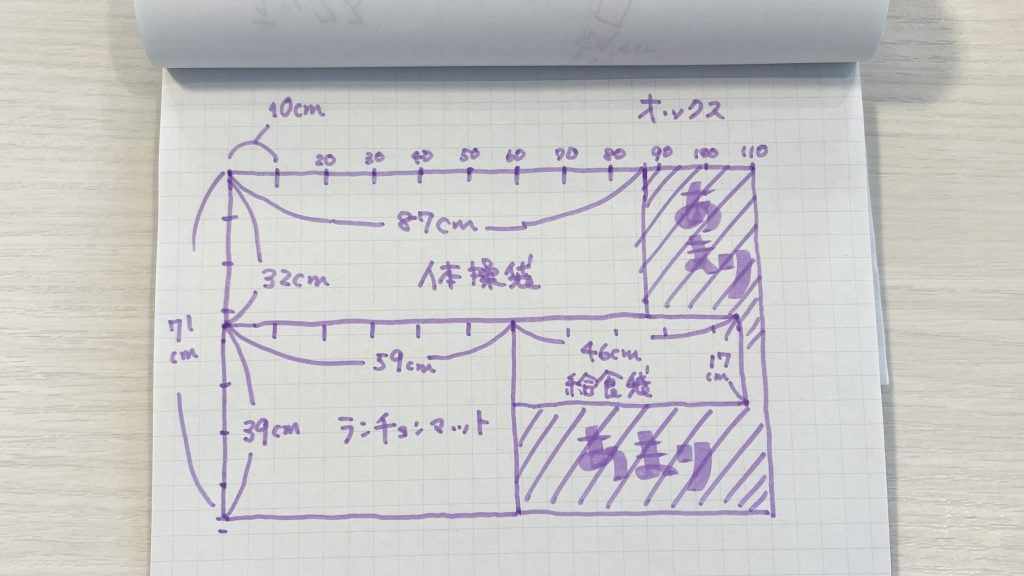 10cm
オックス
20 30 40 50 60 70 80 90 100 110
87cm
あ
まり
32cm
体操袋
71
cm
59cm
46cm
17
cm
給食袋
39cm
ランチョンマット
あまり